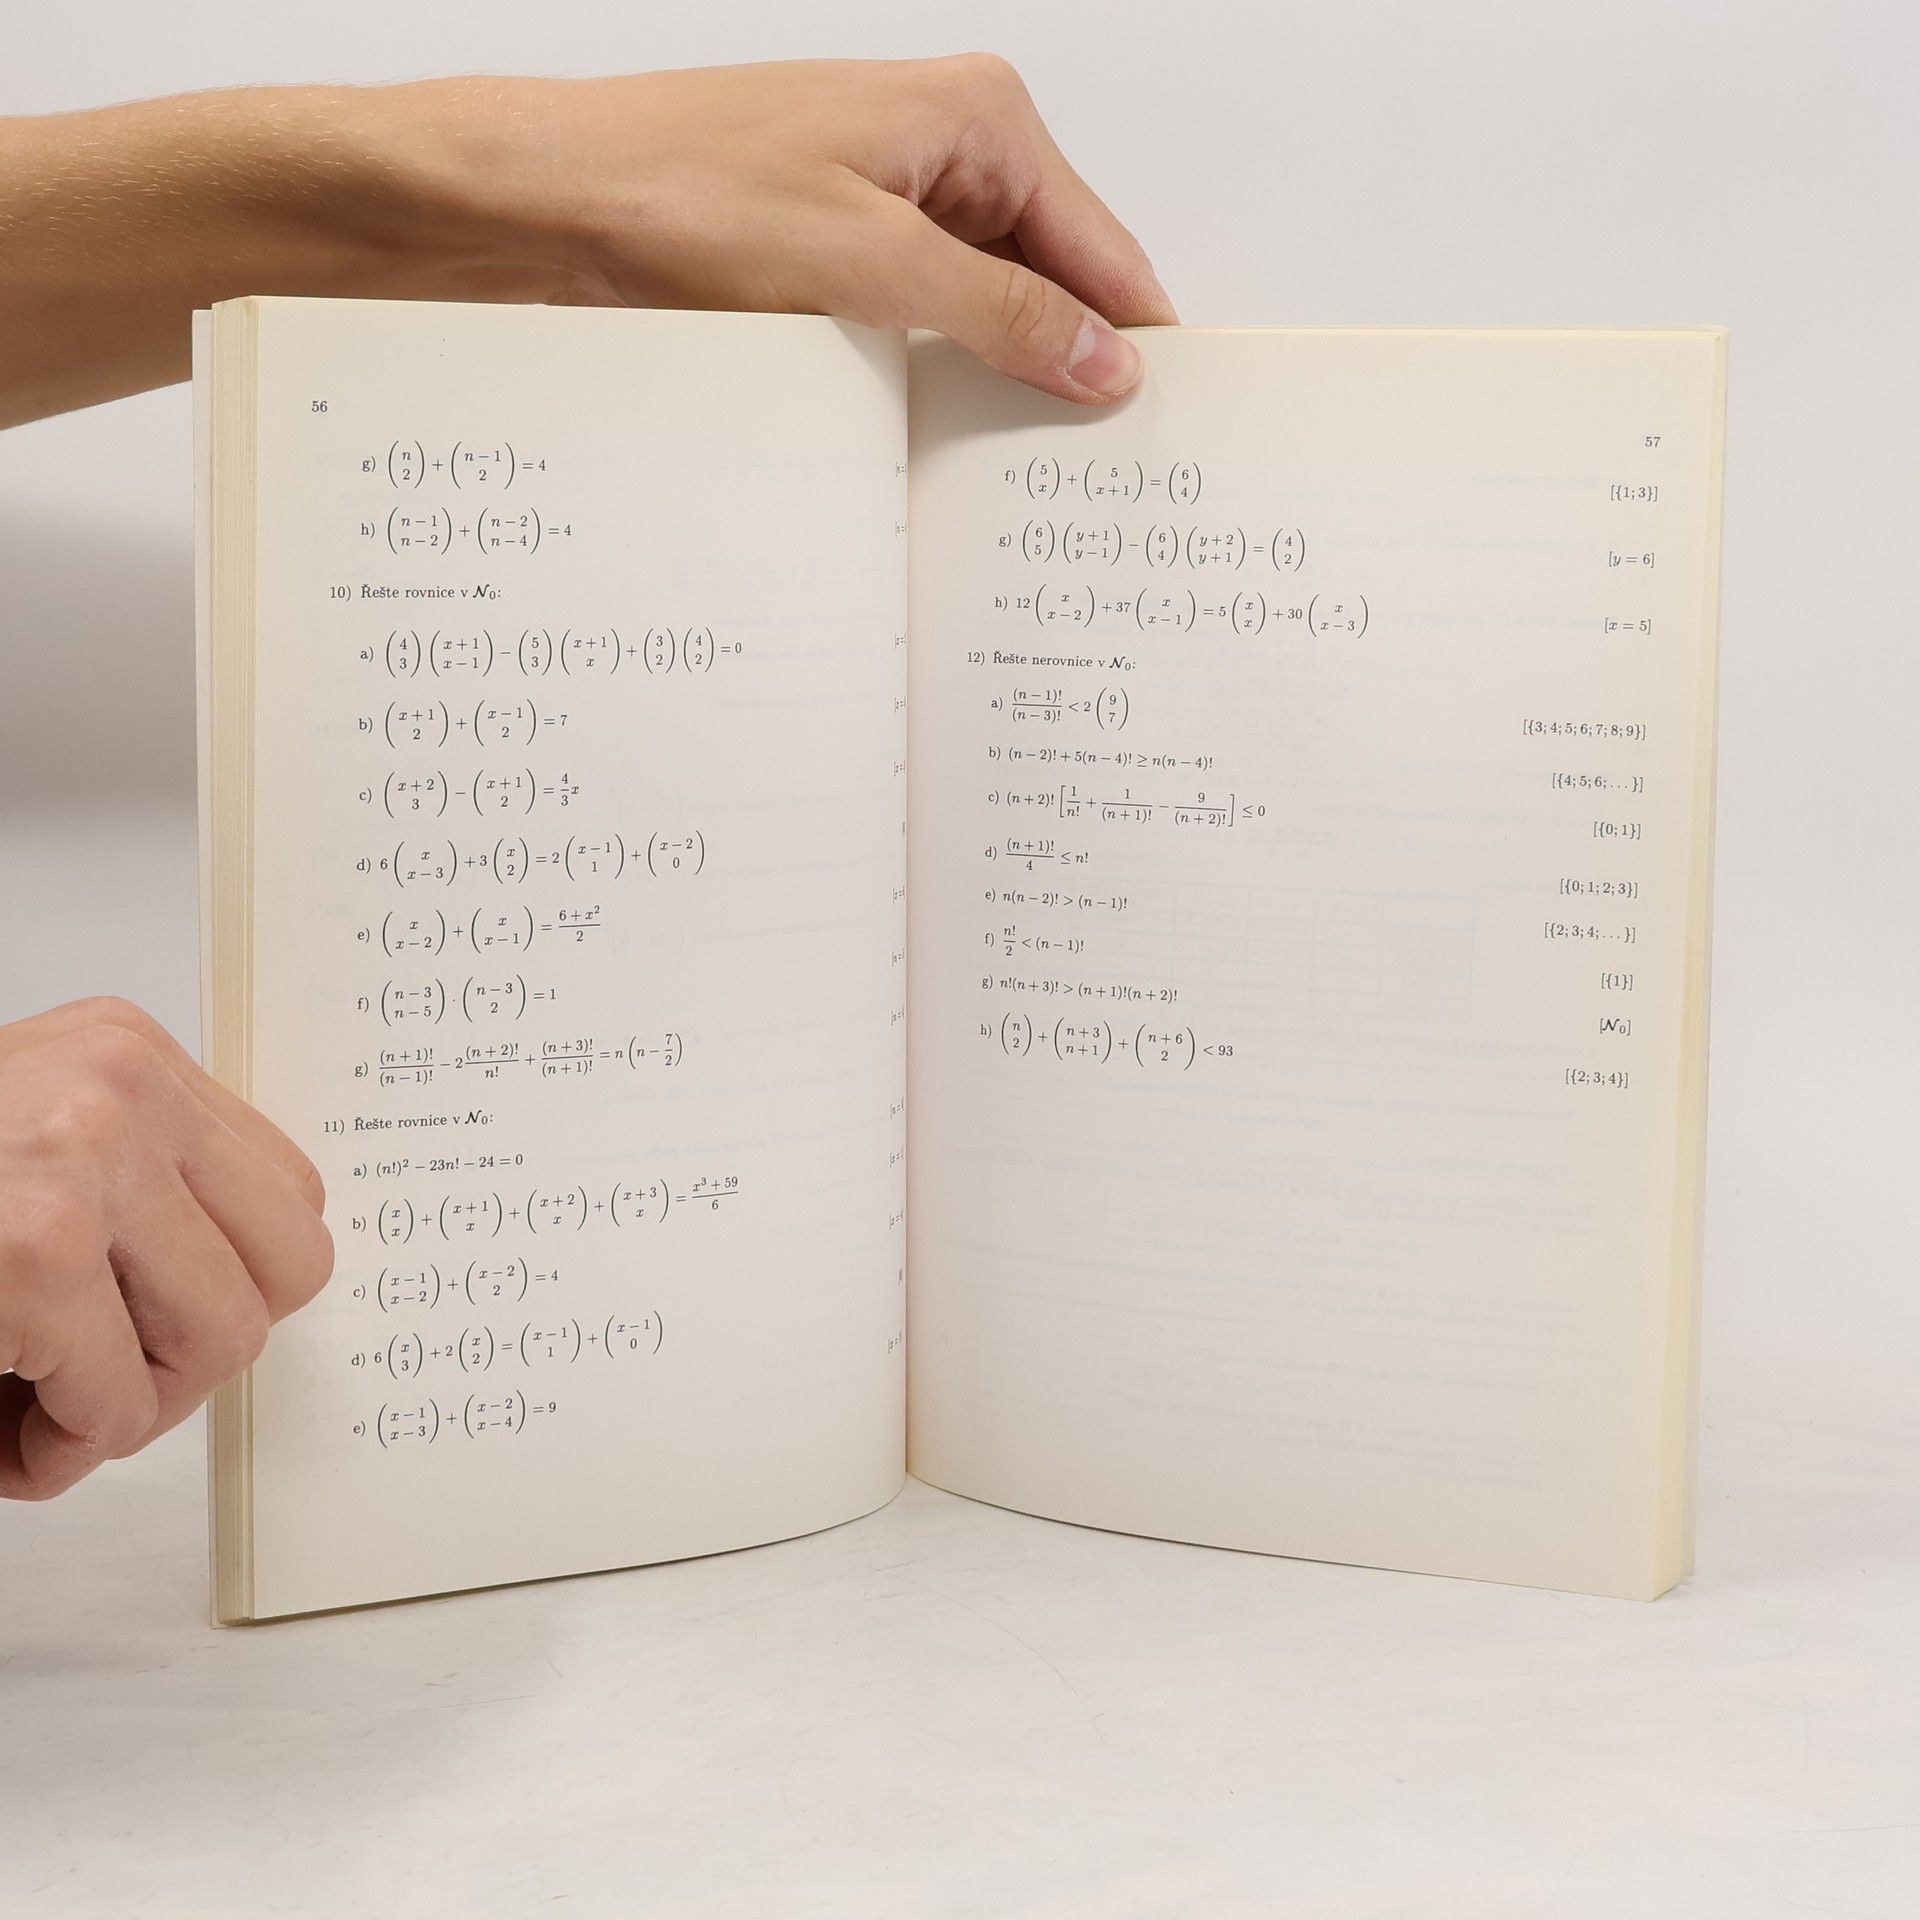 56
g) $\binom{n}{2} + \binom{n-1}{2} = 4$
h) $\binom{n-1}{n-2} + \binom{n-2}{n-4} = 4$
10) Řešte rovnice v $\mathcal{N}_0$:
a) $\binom{4}{3}\binom{x+1}{x-1} - \binom{5}{3}\binom{x+1}{x} + \binom{3}{2}\binom{4}{2} = 0$
b) $\binom{x+1}{2} + \binom{x-1}{2} = 7$
c) $\binom{x+2}{3} - \binom{x+1}{2} = \frac{4}{3}x$
d) $6\binom{x}{x-3} + 3\binom{x}{2} = 2\binom{x-1}{1} + \binom{x-2}{0}$
e) $\binom{x}{x-2} + \binom{x}{x-1} = \frac{6+x^2}{2}$
f) $\binom{n-3}{n-5} \cdot \binom{n-3}{2} = 1$
g) $\frac{(n+1)!}{(n-1)!} - 2\frac{(n+2)!}{n!} + \frac{(n+3)!}{(n+1)!} = n\left(n - \frac{7}{2}\right)$
11) Řešte rovnice v $\mathcal{N}_0$:
a) $(n!)^2 - 23n! - 24 = 0$
b) $\binom{x}{x} + \binom{x+1}{x} + \binom{x+2}{x} + \binom{x+3}{x} = \frac{x^3+59}{6}$
c) $\binom{x-1}{x-2} + \binom{x-2}{2} = 4$
d) $6\binom{x}{3} + 2\binom{x}{2} = \binom{x-1}{1} + \binom{x-1}{0}$
e) $\binom{x-1}{x-3} + \binom{x-2}{x-4} = 9$
57
f) $\binom{5}{x} + \binom{5}{x+1} = \binom{6}{4}$ [{1; 3}]
g) $\binom{6}{5}\binom{y+1}{y-1} - \binom{6}{4}\binom{y+2}{y+1} = \binom{4}{2}$ [y = 6]
h) $12\binom{x}{x-2} + 37\binom{x}{x-1} = 5\binom{x}{x} + 30\binom{x}{x-3}$ [x = 5]
12) Řešte nerovnice v $\mathcal{N}_0$:
a) $\frac{(n-1)!}{(n-3)!} < 2\binom{9}{7}$ [{3; 4; 5; 6; 7; 8; 9}]
b) $(n-2)! + 5(n-4)! \geq n(n-4)!$ [{4; 5; 6; ...}]
c) $(n+2)!\left[\frac{1}{n!} + \frac{1}{(n+1)!} - \frac{9}{(n+2)!}\right] \leq 0$ [{0; 1}]
d) $\frac{(n+1)!}{4} \leq n!$ [{0; 1; 2; 3}]
e) $n(n-2)! > (n-1)!$ [{2; 3; 4; ...}]
f) $\frac{n!}{2} < (n-1)!$ [{1}]
g) $n!(n+3)! > (n+1)!(n+2)!$ [$\mathcal{N}_0$]
h) $\binom{n}{2} + \binom{n+3}{n+1} + \binom{n+6}{2} < 93$ [{2; 3; 4}]